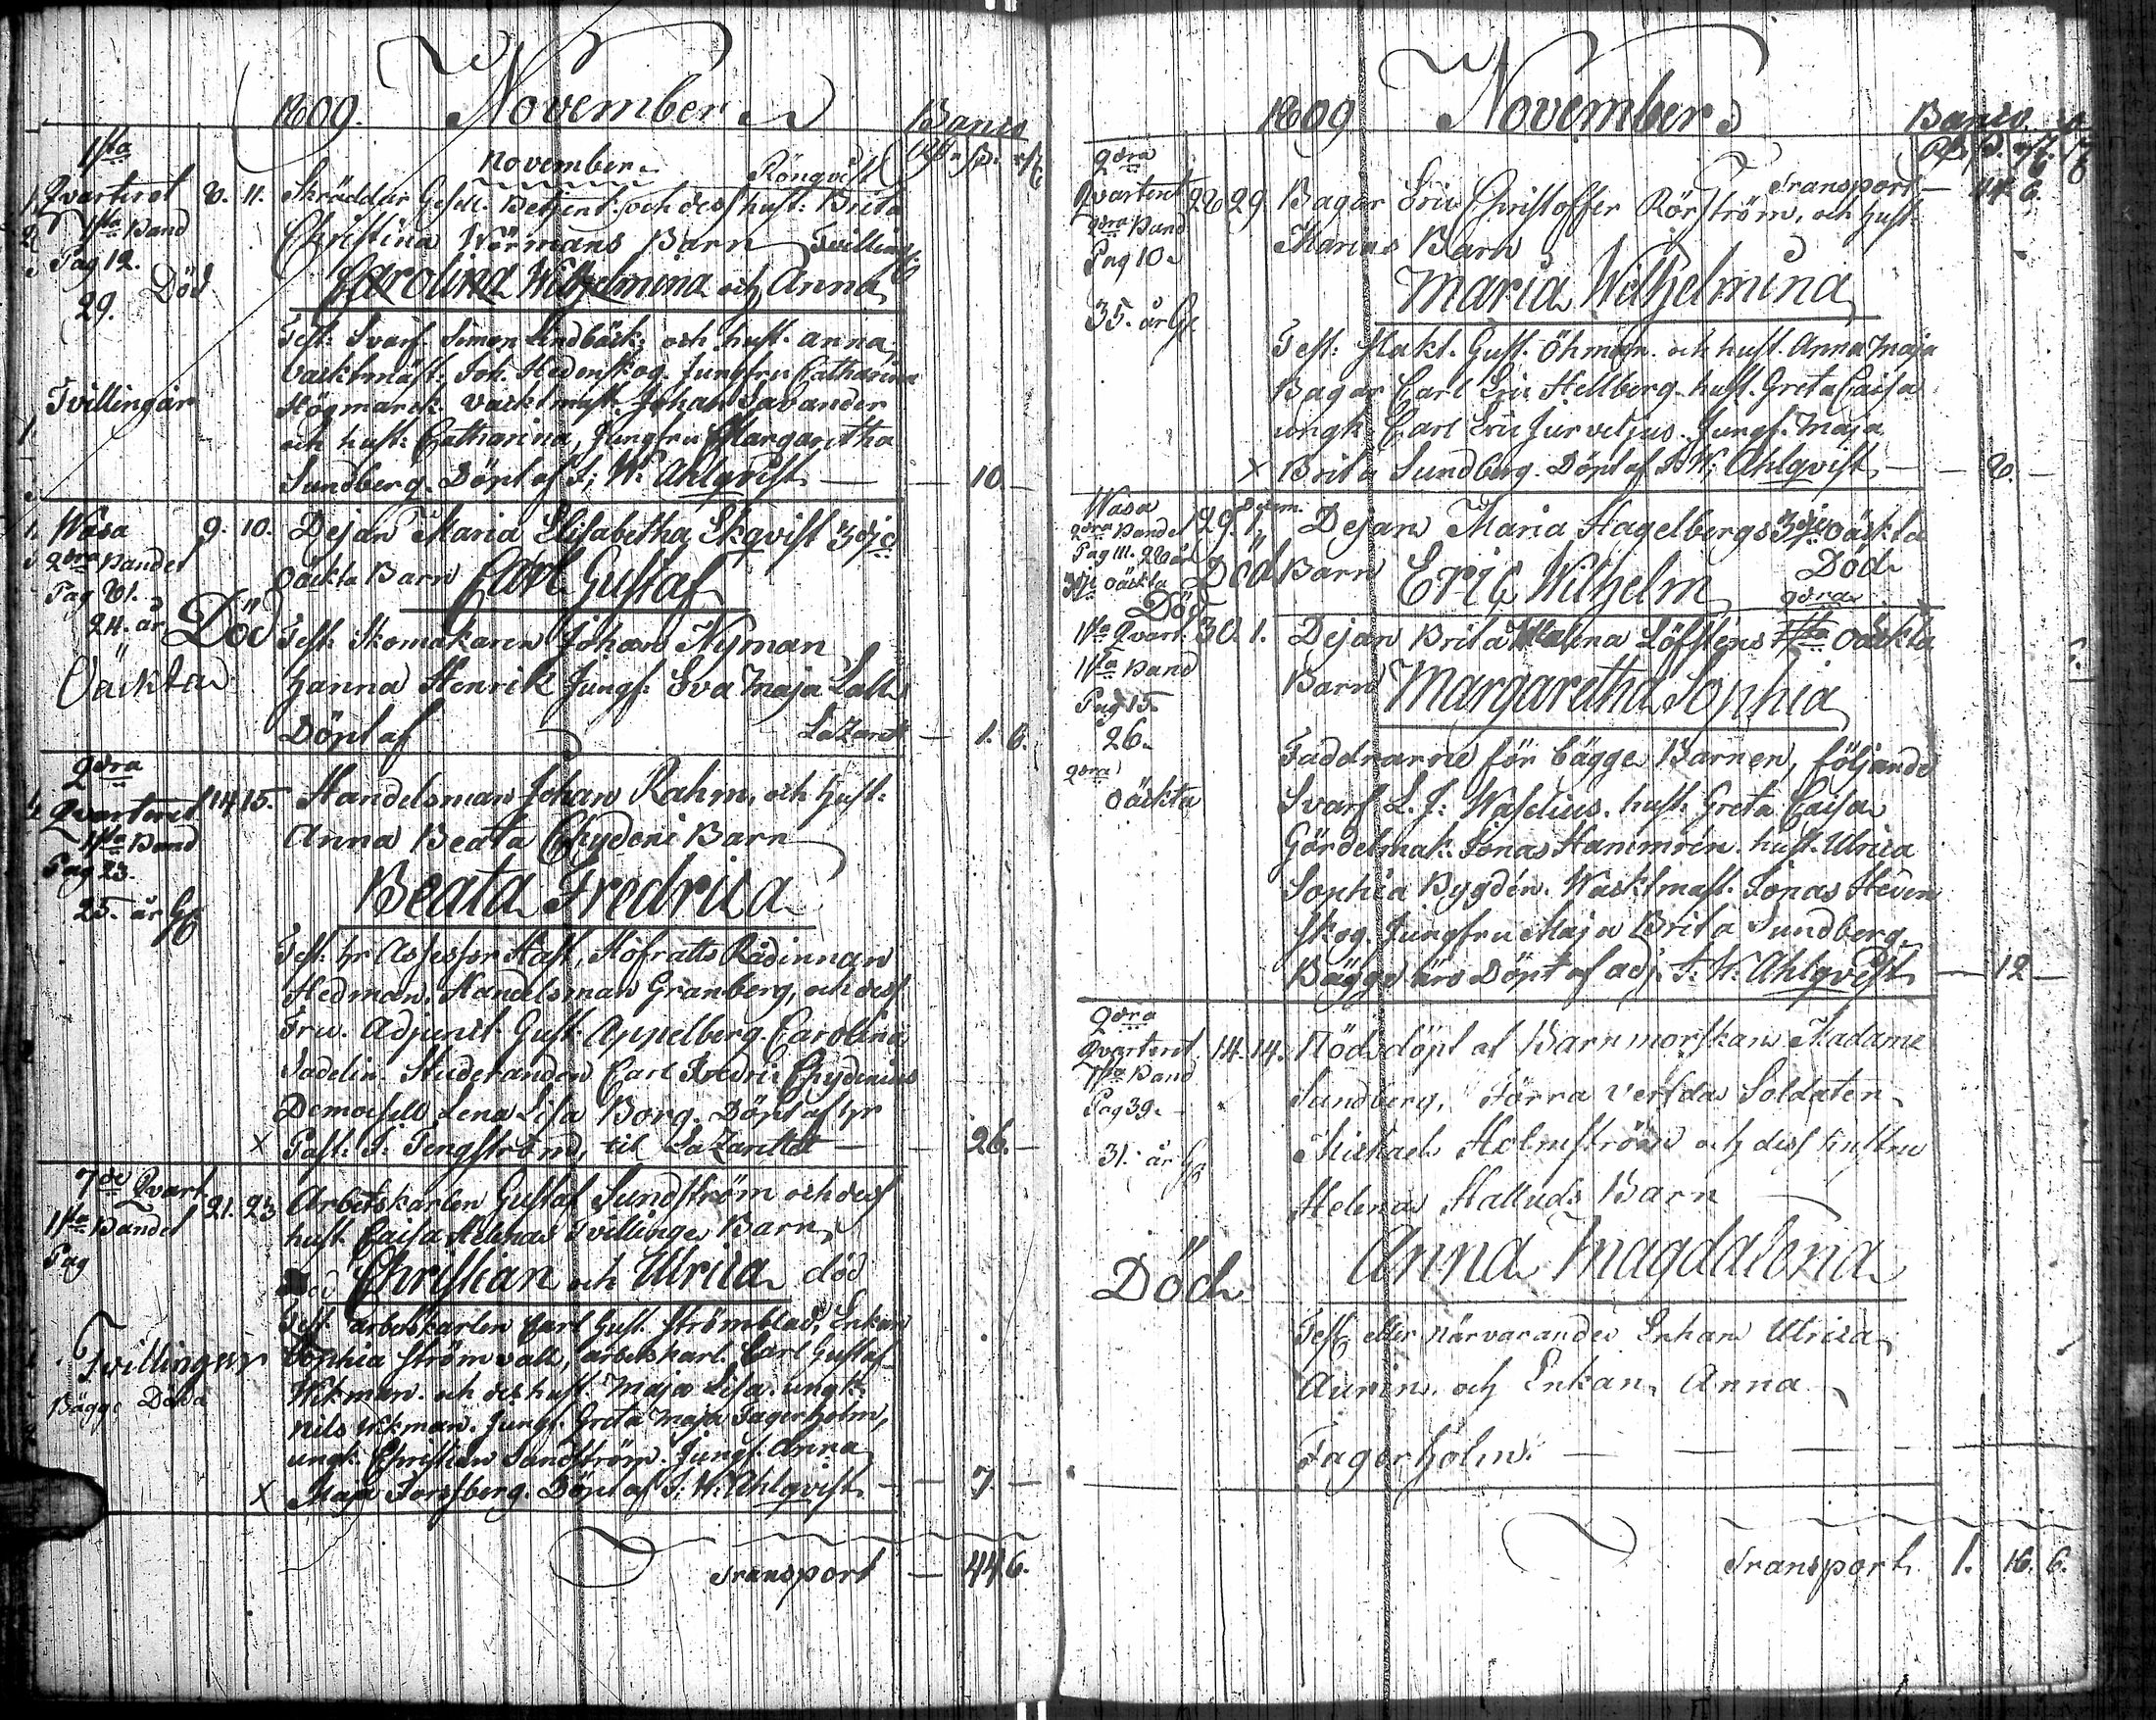 1809. November
Banco
1sta
Qvarteret 8. 11.
1sta Band
Pag 12.
29. Död
Tvillingar
November
Rönqvist
Skräddar Gesell. Betjent. och dess hust: Brita
Christina Wörmans Barn Tvilling:
Carolina Wilhelmina och Anna
Test: Svarf. Simon Lindbäck, och hust. Anna
vacktmäst. Joh. Hedenskog. Jungfru Catharina
Högmarck. vacktmäst. Johan Savander
och hust: Catharina, Jungfru Margaretha
Sundberg. Döpt af J. W. Ahlqvist — 10. —
Wasa 9. 10.
2dra Bandet
Pag 81.
24. år Död
Oäckta
Dejan Maria Elisabetha Ekqvist 3dje
oäckta Barn Carl Gustaf
Test: Skomakaren Johan Nyman
Hanna Henrik Jungf: Eva Maja Lall
Döpt af Lazaret — 1. 6.
2dra
Qvarteret 14 15.
1sta Band
Pag 23.
25. år
Handelsman Johan Rahm, och Hust:
Anna Beata Chydeni Barn
Beata Fredrica
Test: hr Assessor Hast, Hofrätts Rådinnan
Hedman, Handelsman Granberg, och dess
Fru. Adjunct. Gust. Appelberg. Carolina
Sadelin. Studeranden Carl Fredric Chydenius
Demoisell Lena Lisa Borg. Döpt af hr
x Past: J: Tengström, til Lazarettet — 26. —
7de Qvart. 21. 23
1sta Bandet
Pag
Tvillingar
Bägge Döda
Arbetskarlen Gustaf Sundström och dess
hust Caisa Helenas Tvillinge Barn
Christian och Ulrica död
Test arbetskarlen Carl Gust. Strömblad, Enkan
Sophia Strömvall, arbetskarl. Carl Gustaf
Wikman. och des hust. Maja Lisa. ungk:
Nils Wikman. Jungf. Greta Maja Fagerholm,
ungk. Christian Sandström. Jungf. Anna
x Maja Forssberg. Döpt af J. W. Ahlqvist — 7 —
Transport — 44. 6.
1809 November
Banco.
Transport — 44. 6.
2dra
Qvarteret 28 29.
2dra Band
Pag 10.
35. år
Bagar Eric Christoffer Rörström, och hust.
Marias Barn
Maria Wilhelmina
Test: Slakt. Gust. Öhman. och hust. Anna Maja
Bagar Carl Eric Hellberg. hust. Greta Caisa
ungk. Carl Eric Jurveljus. Jungf. Maja
x Brita Sundberg. Döpt af J. W. Ahlqvist — 8. —
Wasa
2dra Bandet 29. 1
Pag 111. 28 år
3dje oäckta Död
Dejan Maria Hagelbergs 3dje oäckta
Barn Eric Wilhelm Död
2dra
1sta Qvart. 30. 1.
1sta Band
Pag 15.
26.
2dra
oäckta
Dejan Brita Helena Löfstens oäckta
Barn Margaretha Sophia
Faddrarne för bägge Barnen, följande
Svarf L. J: Waselius. hust. Greta Caisa
Gördelmak. Jonas Hammrén. hust. Ulrica
Sophia Bygdén. Wacktmäst. Jonas Heden
skog. Jungfru Maja Brita Sundberg.
Bägge äro Döpt af adj. J. W. Ahlqvist — 12 —
2dra
Qvarteret 14. 14.
1sta Band
Pag 39.
31. år
Död
Nödsdöpt af Barnmorskan Madame
Sundberg, Förra Soldaten
Michael Holmström och dess hustru
Helenas Barn
Anna Magdalena
Test eller närvarande Enkan Ulrica
Aurin. och Enkan Anna
Fagerholm. —
Transport 1. 16. 6.